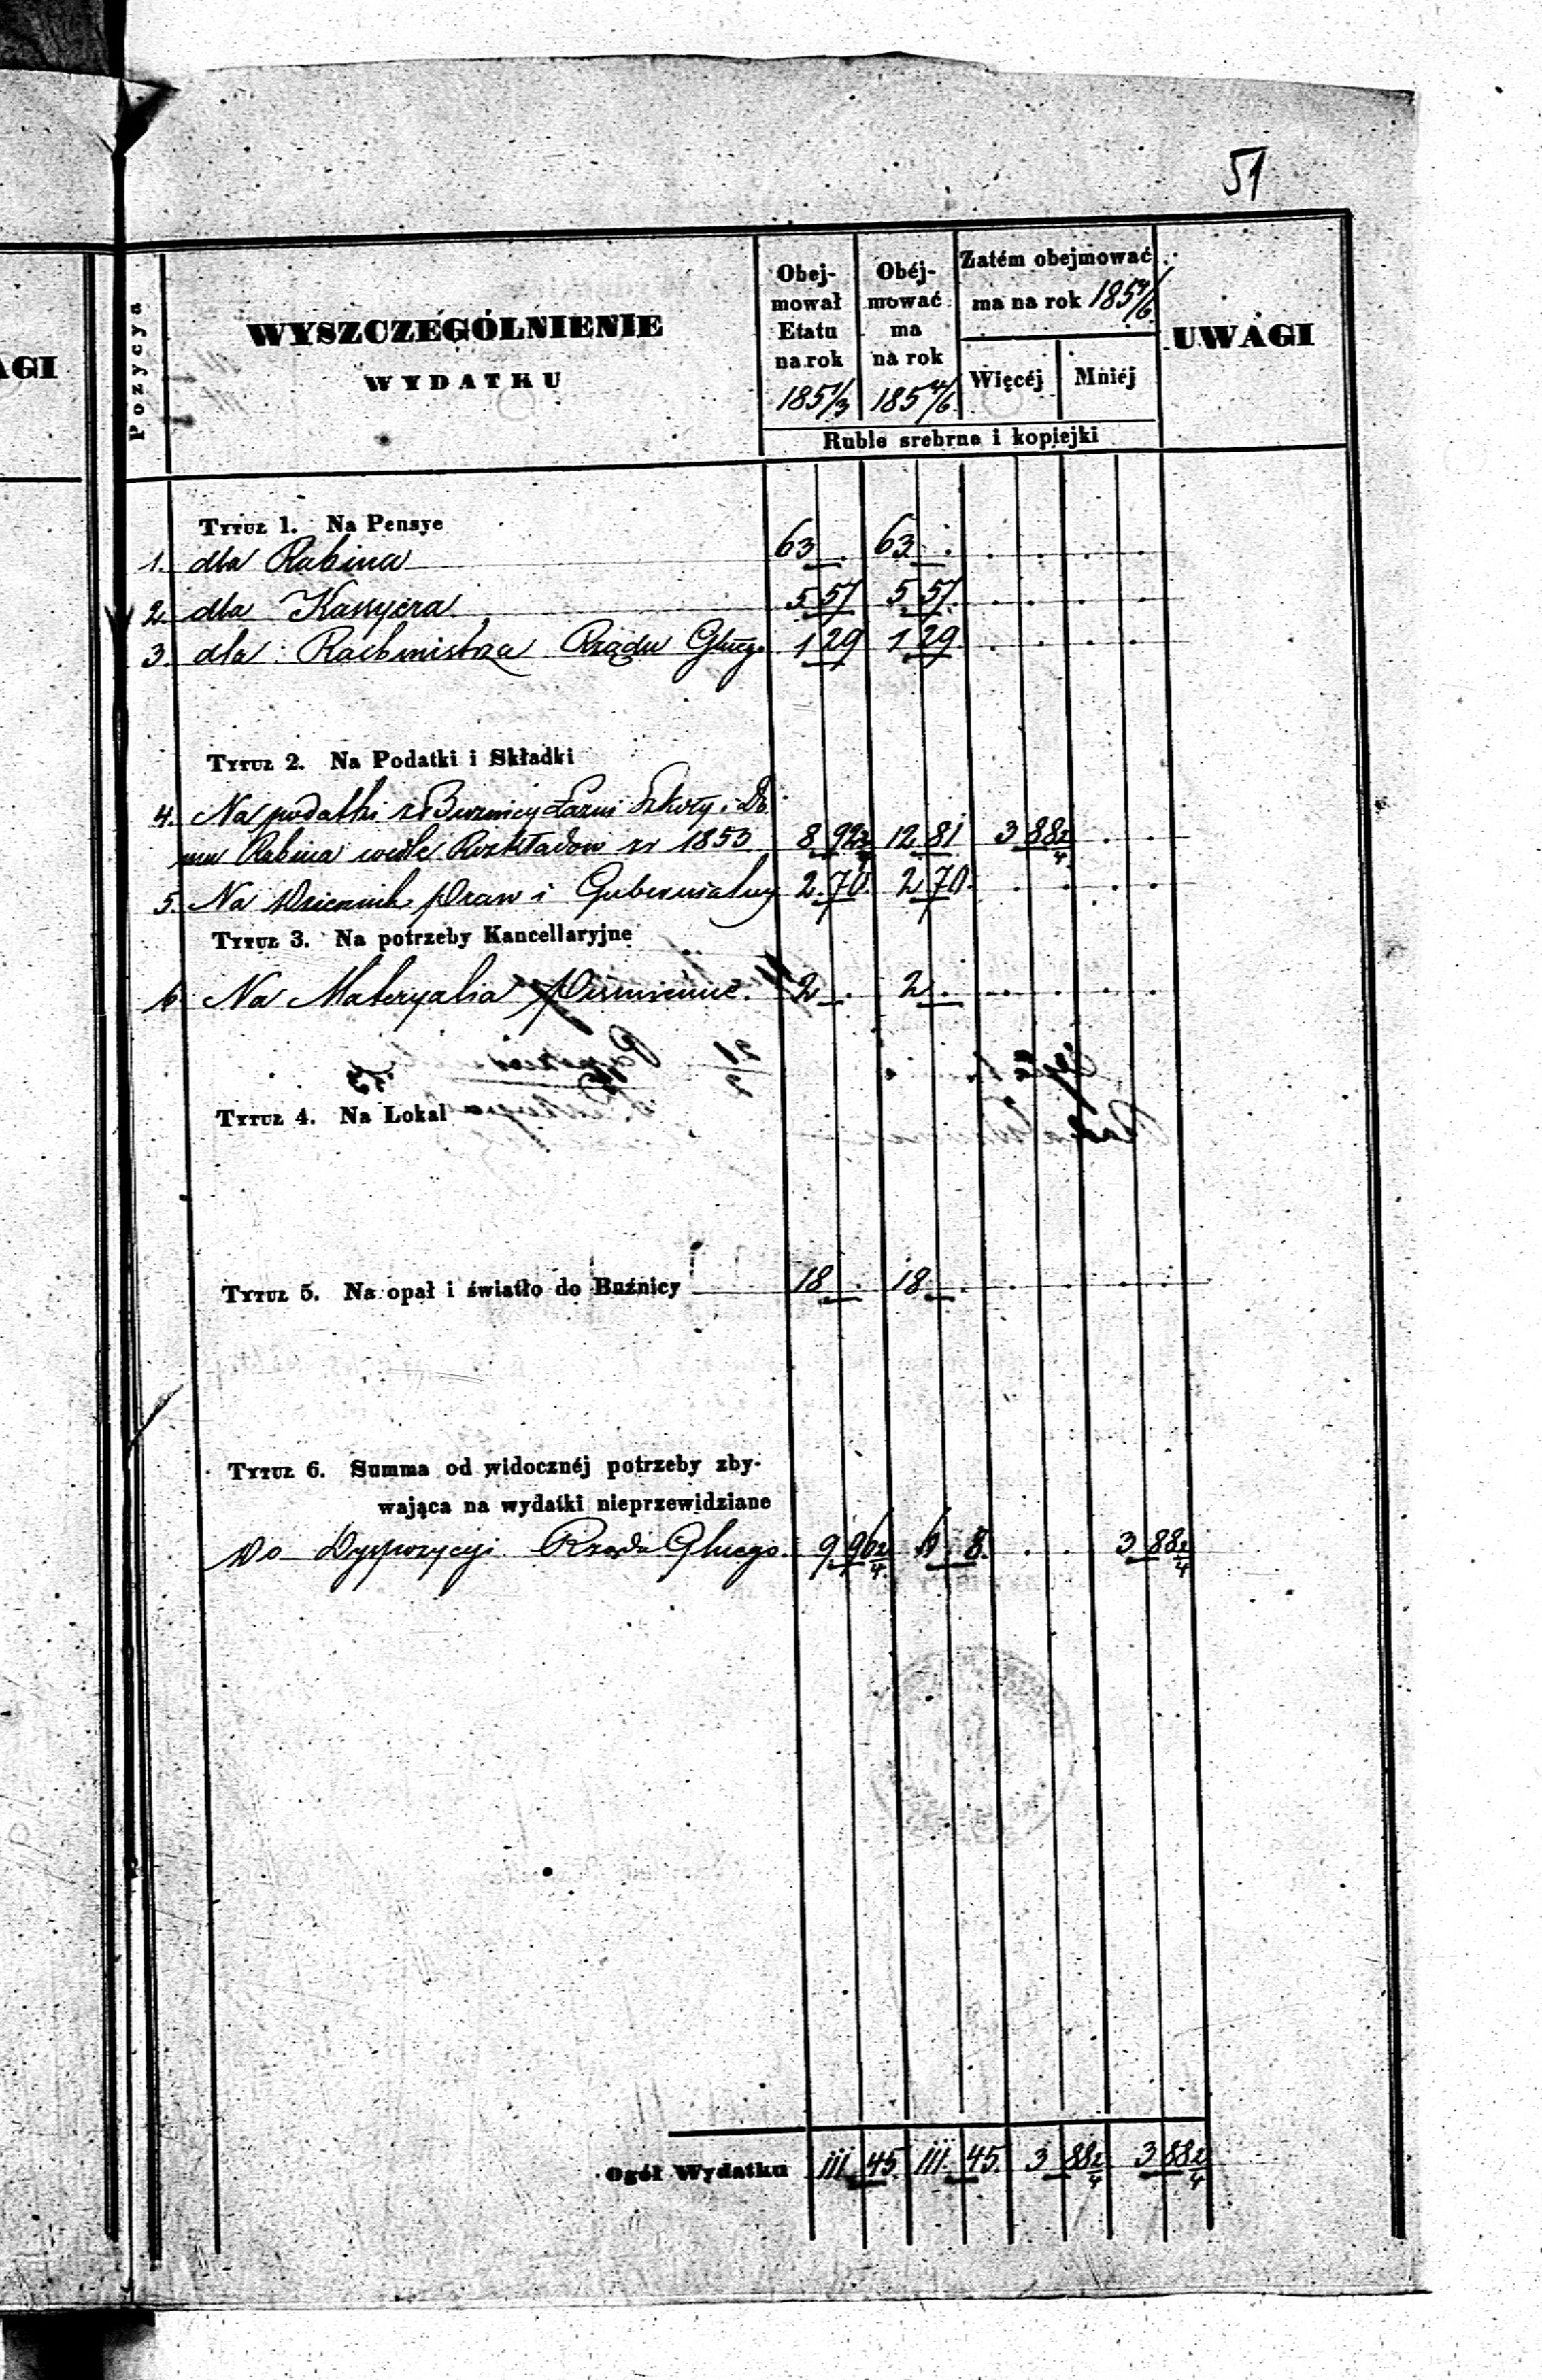 51
AGI
Pozycya
WYSZCZEGÓLNIENIE
WYDATKU
Obej-
mował
Etatu
na rok
1851/3
Obéj-
mować
ma
na rok
1854/6
Zatém obejmować
ma na rok 1854/6
Więcéj
Mniéj
UWAGI
Ruble srebrne i kopiejki
Tytuł 1. Na Pensye
1. dla Rabina 63 . 63 . . . . .
2. dla Kassyera 5 57 5 57 . . . .
3. dla Rachmistrza Rządu Głneg. 1 29 1 29 . . . .
Tytuł 2. Na Podatki i Składki
4. Na podatki z Buznicy Łazni Szkoły i Do
mu Rabina wedle Rozkładow zr 1853 8 92 2/4 12 81 3 88 2/4 . .
5. Na Dziennik Praw i Gubernialny 2.70. 2 70. . . . .
Tytuł 3. Na potrzeby Kancellaryjne
6. Na Materyalia Piśmienne. 2 . 2 . . . . .
Tytuł 4. Na Lokal
Tytuł 5. Na opał i światło do Buźnicy 18 . 18 . . . . .
Tytuł 6. Summa od widocznéj potrzeby zby-
wająca na wydatki nieprzewidziane
Do Dyspozycyi Rządu Głnego. 9 96 2/4 6 8. . . 3 88 2/4
Ogół Wydatku 111 45. 111. 45. 3 88 2/4 3 88 2/4